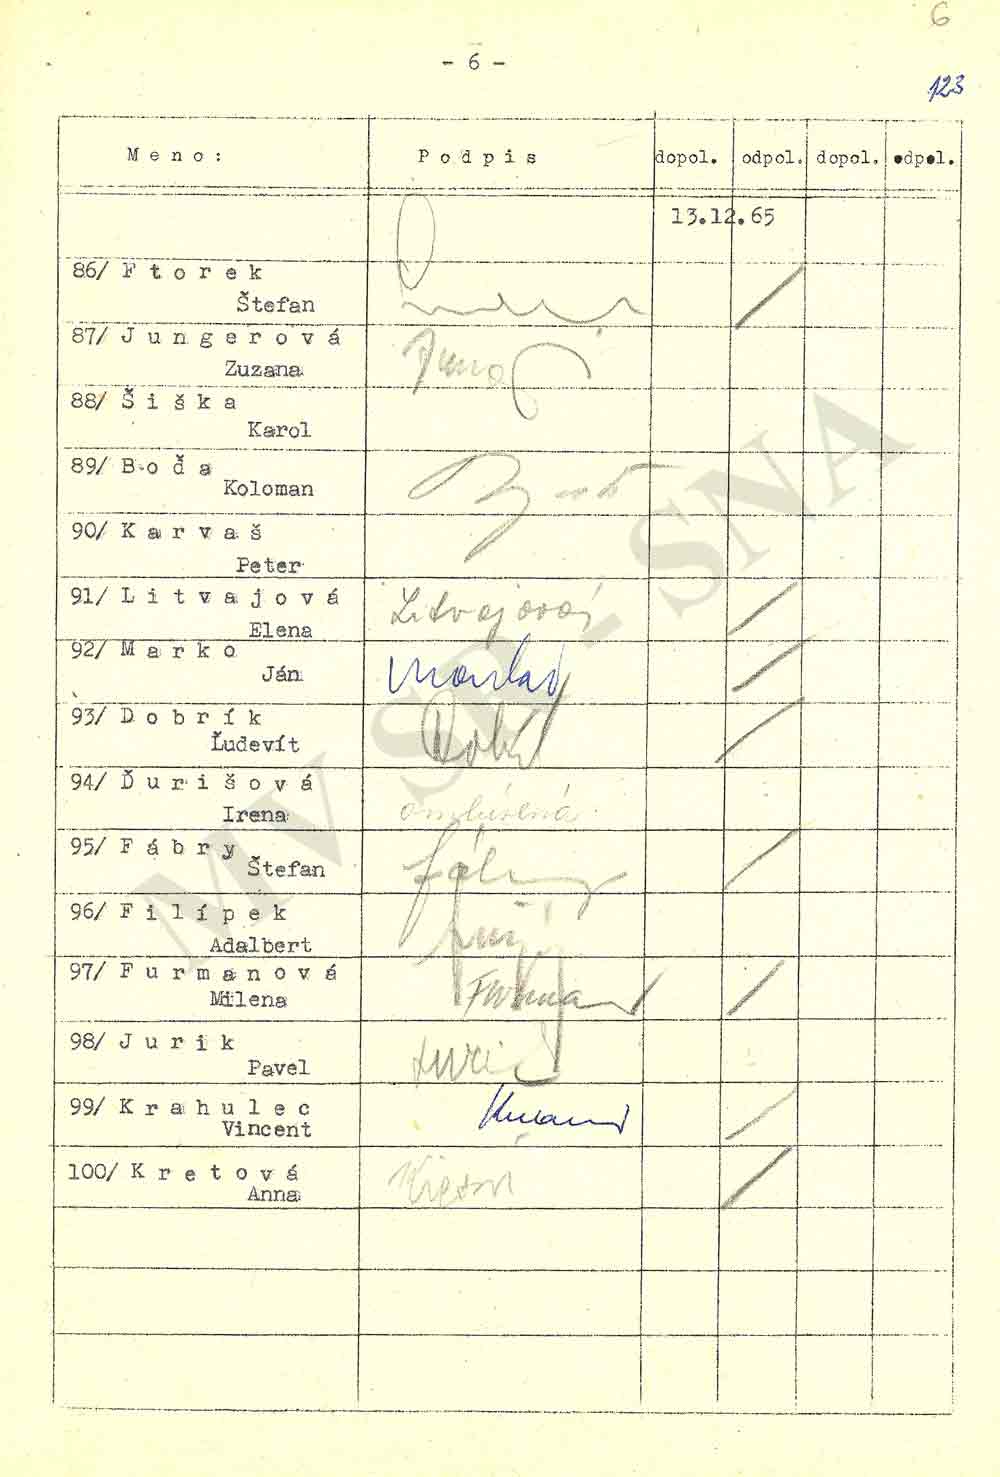 6
- 6 -
123
M e n o : P o d p i s dopol. odpol. dopol. odpol.
13.12.65
86/ F t o r e k
Štefan
87/ J u n g e r o v á
Zuzana
88/ Š i š k a
Karol
89/ B o ď a
Koloman
90/ K a r v a š
Peter
91/ L i t v a j o v á
Elena
Litvajová
92/ M a r k o
Ján
93/ D o b r í k
Ľudevít
94/ Ď u r i š o v á
Irena
95/ F á b r y
Štefan
96/ F i l í p e k
Adalbert
97/ F u r m a n o v á
Milena
98/ J u r i k
Pavel
99/ K r a h u l e c
Vincent
100/ K r e t o v á
Anna
MV SR - SNA